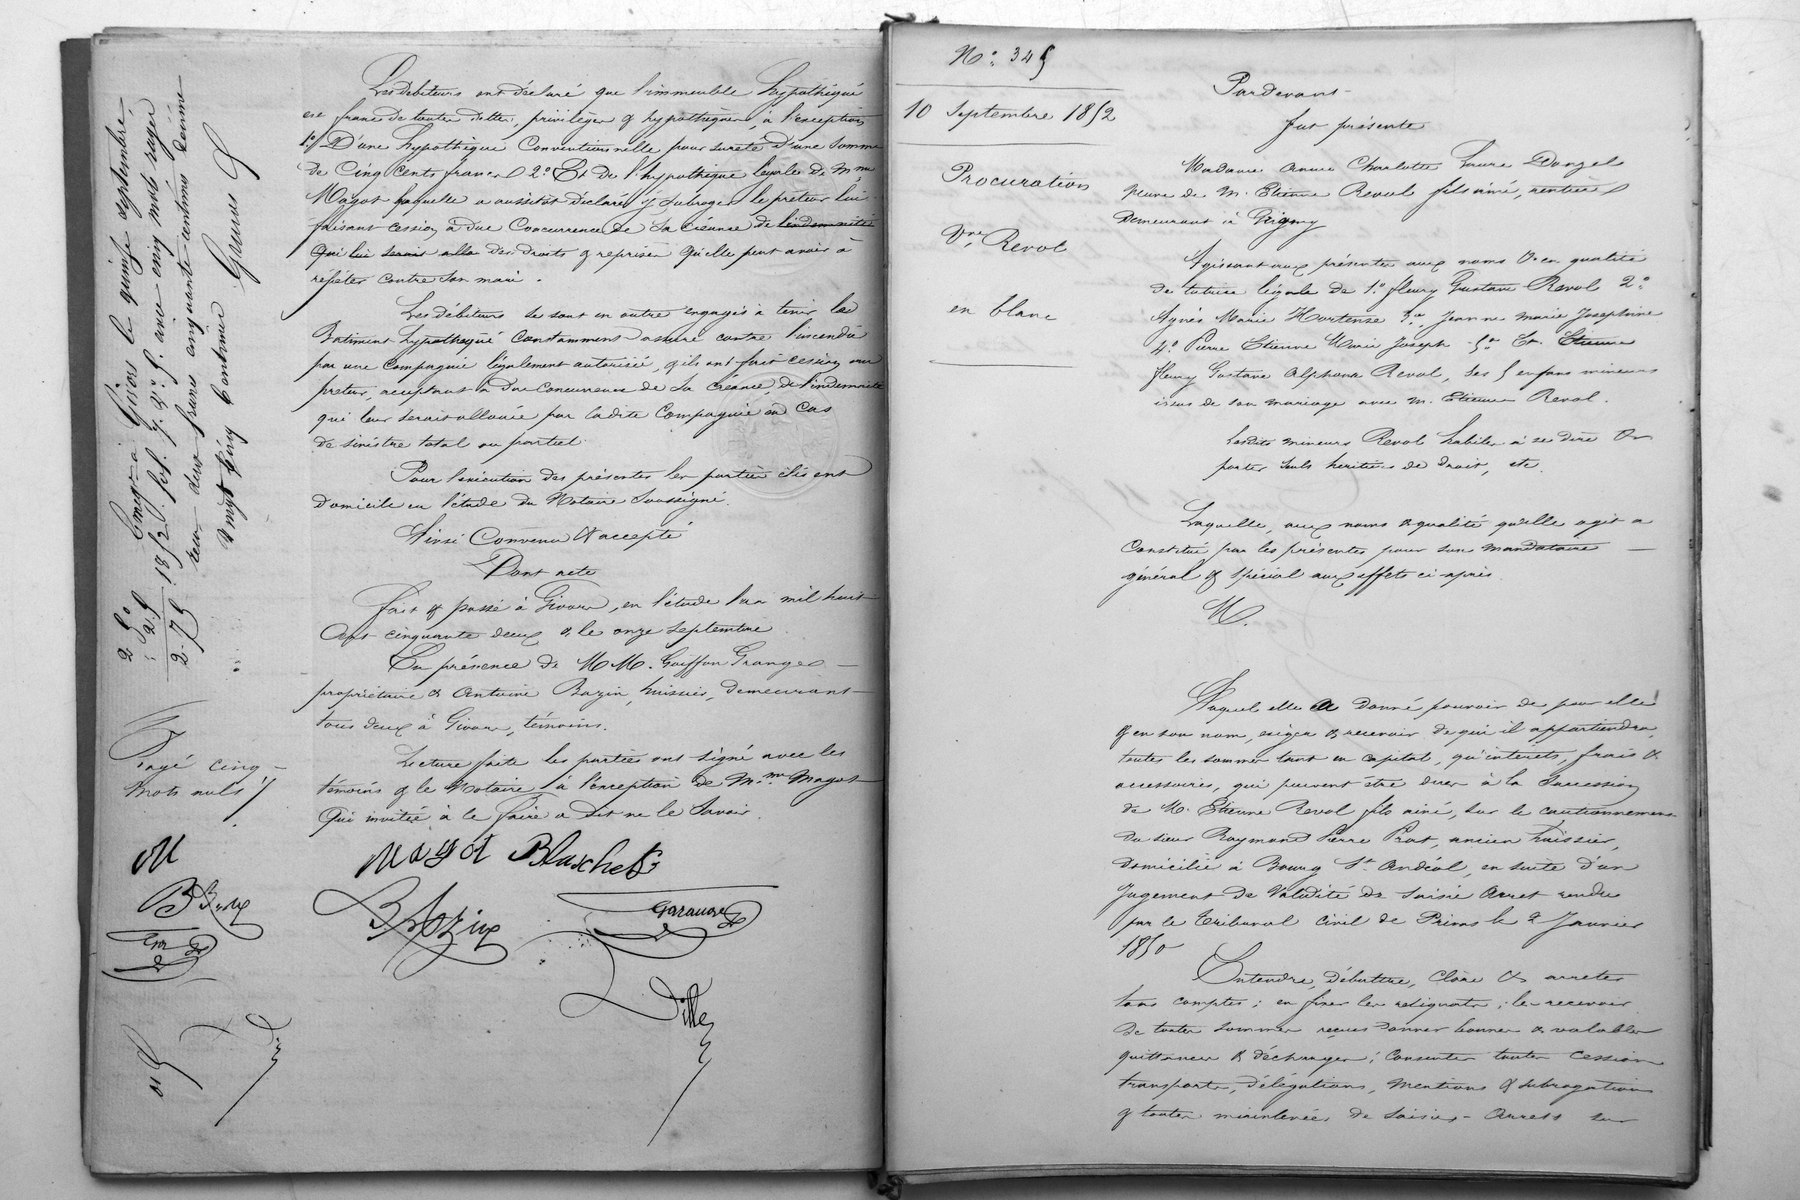 Les débiteurs ont déclaré que l'immeuble hypothéqué
est franc de toutes dettes, privilèges & hypothèques, à l'exception
1º D'une hypothèque Conventionnelle pour sureté d'une somme
de Cinq Cents francs 2º Et de l'hypothèque légale de Mme
Mayot laquelle a aussitôt déclaré y subroger le prêteur lui
faisant cession à due Concurrence de sa Créance de l'indemnité
qui lui serait allo des droits & reprises qu'elle peut avoir à
répéter contre son mari.
Les débiteurs se sont en outre engagés à tenir le
Batiment hypothéqué constamment assuré contre l'incendie
par une Compagnie légalement autorisée, & ils ont fait cession au
preteur, acceptant à due concurrence de sa créance, de l'indemnité
qui leur serait allouée par ladite Compagnie en Cas
de sinistre total ou partiel.
Pour l'exécution des présentes les parties élisent
domicile en l'étude du Notaire Soussigné.
Ainsi Convenu & accepté
Dont acte
Fait & passé à Givors, en l'étude l'an mil huit
cent cinquante deux & le onze septembre
En présence de MM. Goiffon Granges
propriétaire & Antoine Bazin, huissier, demeurant
tous deux à Givors, témoins.
Lecture faite les parties ont signé avec les
témoins & le Notaire à l'exception de Mme Mayot
Qui invitée à le faire a dit ne le Savoir.
Mayot Blanchet
Bazin
Enreg. à Givors le quinze septembre
1852. fol. avec cinq mots rayés
reçu deux francs cinquante centimes decime
vingt cinq Centimes
2 50
25
2.75
Rayé cinq
mots nuls
M
Nº 345
10 Septembre 1852
Procuration
Vve Revol
en blanc
Pardevant
fut présente
Madame Anne Charlotte Laure Donzel
veuve de M. Etienne Revol fils aîné, rentière
Demeurant à Grigny
Agissant aux présentes aux noms & en qualité
de tutrice légale de 1º fleury Gustave Revol 2º
Agnès Marie Hortense 3º Jeanne Marie Josephine
4º Pierre Etienne Marie Joseph 5º Et Etienne
fleury Gustave Alphonse Revol, ses 5 enfans mineurs
issus de son mariage avec M. Etienne Revol.
Lesdits mineurs Revol habiles à se dire &
porter seuls héritiers de droit, etc.
Laquelle, aux noms & qualité qu'elle agit a
Constitué par les présentes pour son mandataire
général & spécial aux effets ci après
M.
Auquel elle a donné pouvoir de pour elle
& en son nom, exiger & recevoir de qui il appartiendra
toutes les sommes tant en capital, qu'intérêts, frais &
accessoires, qui peuvent être dues à la Succession
de M. Etienne Revol fils aîné, sur le cautionnement
du sieur Raymond Pierre Prat, ancien huissier,
domicilié à Bourg St Andéol, en suite d'un
Jugement de Validité de Saisie Arret rendu
par le tribunal civil de Privas le 2 Janvier
1850
Entendre, débattre, clore & arreter
tous comptes; en fixer les reliquats; les recevoir
De toutes sommes reçues donner bonnes & valables
quittances & décharges; Consentir toutes cession
transports, délégations, mentions & subrogations
& toutes mainlevées de Saisies-Arrets sur